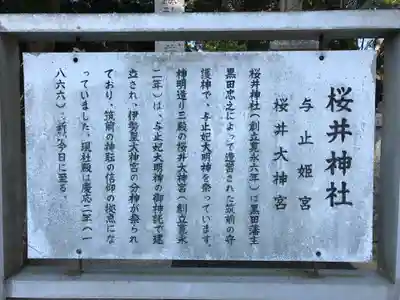 桜井神社
与止姫宮
桜井大神宮
桜井神社（創立寛永六年）は黒田藩主
黒田忠之によって造営された筑前の守
護神で、与止妃大明神を祭っています。
神明造り三殿の桜井大神宮（創立寛永
二年）は、与止妃大明神の御神託で建
立され、伊勢皇大神宮の分神が祭られ
ており、筑前の神祇の信仰の拠点にな
っていました、現社殿は慶応二年（一
八六六）、今日に至る。